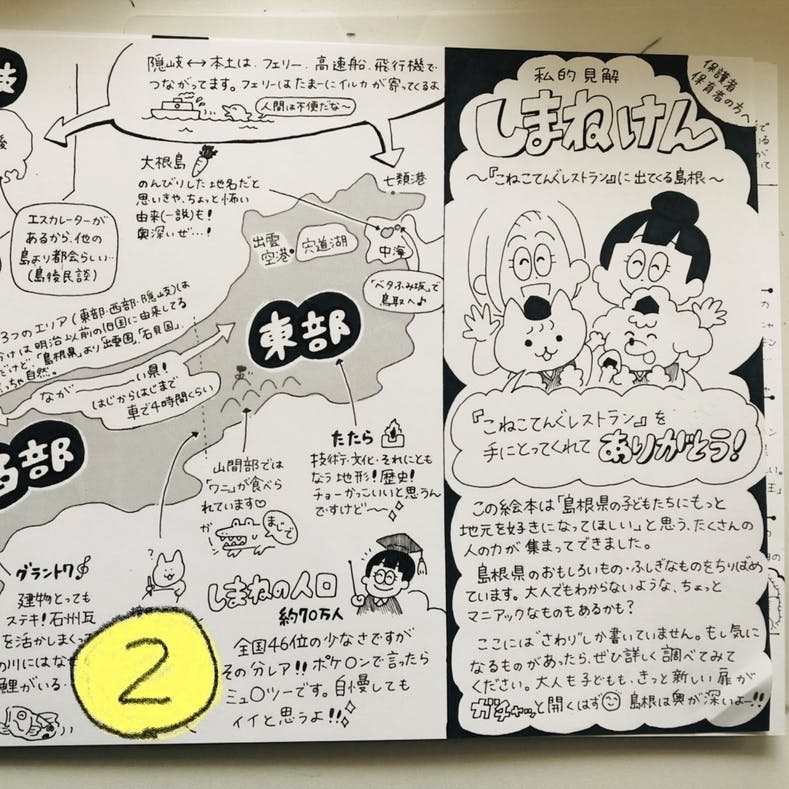 私的見解
しまねけん
～『こねこてんぐレストラン』に出てくる島根～
保護者
保育者の方へ
『こねこてんぐレストラン』を
手にとってくれて ありがとう!
この絵本は「島根県の子どもたちにもっと
地元を好きになってほしい」と思う、たくさんの
人の力が集まってできました。
島根県のおもしろいもの・ふしぎなものをちりばめ
ています。大人でもわからないような、ちょっと
マニアックなものもあるかも?
ここには"さわり"しか書いていません。もし気に
なるものがあったら、ぜひ詳しく調べてみて
ください。大人も子どもも、きっと新しい扉が
ガチャッと開くはず 島根は奥が深いよー!!
隠岐↔本土は、フェリー、高速船、飛行機で
つながってます。フェリーはたまーにイルカが寄ってくるよ
人間は不便だな～
大根島
のんびりした地名だと
思いきや、ちょっと怖い
由来(一説)も!
奥深いぜ…!
七類港
エスカレーターが
あるから、他の
島より都会らしい…
(島後民談)
出雲
空港
宍道湖
中海
「ベタふみ坂」で
鳥取へ♪
東部
3つのエリア(東部・西部・隠岐)は
分けは明治以前の旧国に由来してる
だけど、「島根県」より出雲国、「石見国」、
っちゃ自然。
なが――――い県!
はじからはじまで
車で4時間くらい
西部
山間部では
「ワニ」が食べら
れています♡
ガ
まじで
たたら
技術・文化・それにとも
なう地形!歴史!
チョーかっこいいと思うん
ですけど〜〜
グラントワ
建物とっても
ステキ!石州瓦
を活かしまくっ
の川にはなぜ
鯉がいる…
?
しまねの人口
約70万人
全国46位の少なさですが
その分レア!!ポケ〇ンで言ったら
ミュ〇ツーです。自慢しても
イイと思うよ!!
2